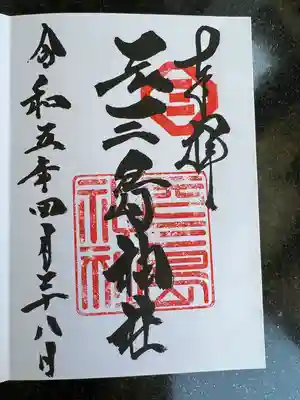 奉拝
三島神社
令和五年四月二十八日
三島神社